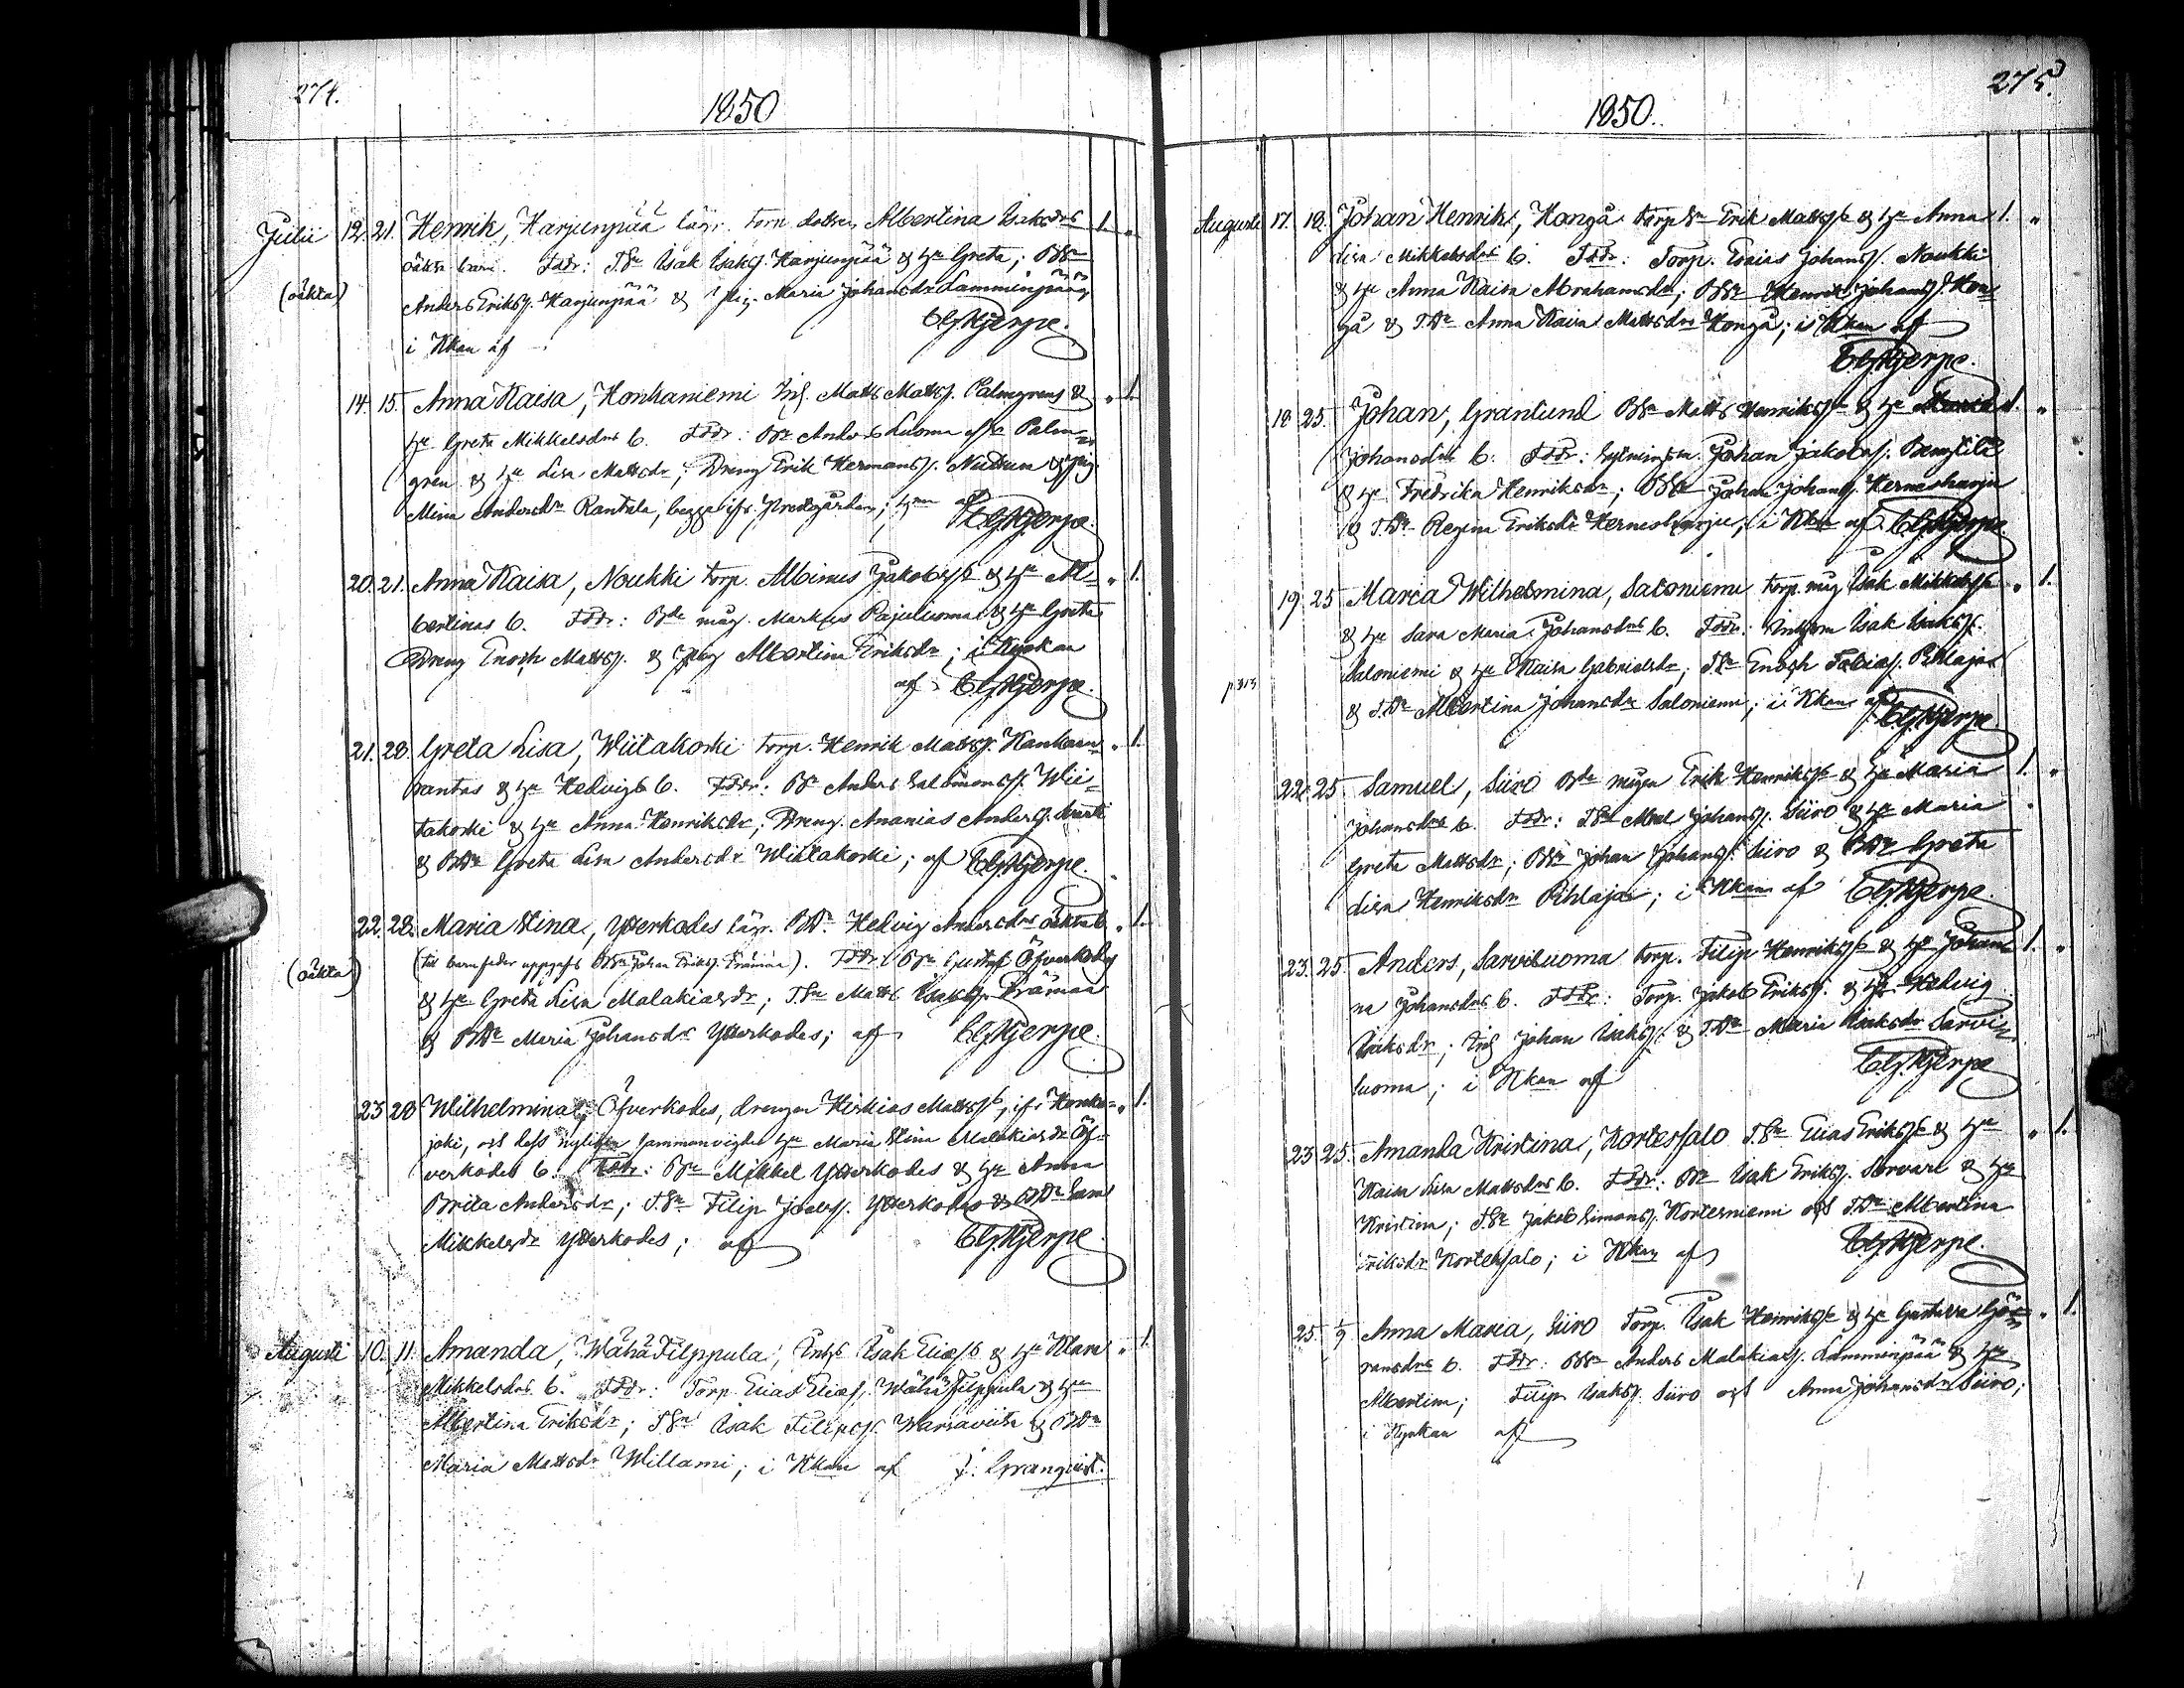 274.
1850
Julii 12. 21. Henrik, Harjunpää lägr. torp. dottren Albertina Isaksdrs 1. "
oäkta barn. Fddr: T.Sn Isak Isakss. Harjunpää & Hu Greta; BSn
(oäkta) Anders Erikss. Harjunpää & Pig. Maria Johansdr Lamminpää,
i Kkan af CGHjerpe.
14. 15. Anna Kaisa, Honkaniemi Inh. Matts Mattss. Palmgrens & " 1.
Hu Greta Mikkelsdrs b. Fddr: Bn Anders Luoma Palm=
gren & Hu Lisa Mattsdr; Dreng Erik Hermanss. & Pig.
Mina Andersdr Rantala, begge ifr. ; af
CGHjerpe.
20. 21. Anna Kaisa, Noukki torp. Albinus Jakobss & Hu Al= " 1.
bertinas b. Fddr: Bde måg. Markus Pajuluoma & Hu Greta
Dreng Enoch Mattss. & Pig Albertina Eriksdr; i Kyrkan
af CGHjerpe.
21. 28. Greta Lisa, Wiitakoski torp. Henrik Mattss. Kankaan= " 1.
rantas & Hu Hedvigs b. Fddr: Bn Anders Salomonss. Wii=
takoski & Hu Anna Henriksdr; Dreng. Ananias Anderss.
& BDr Greta Lisa Andersdr Wiitakoski; af CGHjerpe.
22. 28. Maria Stina, Ytterkodes lägr. BDr Hedvig Andersdrs oäkta b. " 1.
(oäkta) (till barnfader uppgifs BSn Johan Erikss. Främaa). Fddr: Bn Gustaf Öfverkodes
& Hu Greta Lisa Malakiasdr; T.Sn Matts Isakss. Främaa
& BDr Maria Johansdr Ytterkodes; af CGHjerpe.
23 28 Wilhelmina, Öfverkodes, drengen Hiskias Mattss, ifr. " 1.
joki, och dess nyligen sammanvigde Hu Maria Stina Malakiasdr Öf=
verkodes b. Fddr: Bn Mikkel Ytterkodes & Hu Anna
Brita Andersdr; T.Sn Filip Joelss. Ytterkodes & BDr Sanna
Mikkelsdr Ytterkodes; af CGHjerpe.
Augusti 10. 11. Amanda, WähäFilppula, Inhs Isak Eliass & Hu Klara " 1.
Mikkelsdrs b. Fddr: Torp. Elias Eliass. WähäFilppula & Hu
Albertina Eriksdr; T.Sn Isak Filipss. Warsaviita & BDr
Maria Mattsdr Willami; i Kkan af J. Granqvist.
275.
1850.
Augusti 17. 18. Johan Henrik, Hongå TorpSn Erik Mattss & Hu Anna 1. "
Lisa Mikkelsdrs b. Fddr: Torp. Esaias Johanss. Noukki
& Hu Anna Kaisa Abrahamsdr; BSn Henrik Johanss. Hon=
gå & T.Dr Anna Kaisa Mattsdr Hongå; i Kkan af
CGHjerpe.
18 25. Johan, Granlund BSn Matts Henrikss & Hu Maria 1. "
Johansdrs b. Fddr: Johan Jakobss.
& Hu Fredrika Henriksdr; BSn Johan Johanss. Hernesharju
& T.Dr Regina Eriksdr Hernesharju, i Kkan af CGHjerpe.
19. 25 Maria Wilhelmina, Saloniemi torp. måg Isak Mikkelss " 1.
& Hu Sara Maria Johansdrs b. Fddr: Isak Isakss.
Saloniemi & Hu Kaisa Gabrielsdr; T.Sn Enoch Tobiass. Pihlaja
p.313 & T.Dr Albertina Johansdr Saloniemi; i Kkan af
CGHjerpe
22. 25 Samuel, Siiro Bde mågen Erik Henrikss & Hu Maria 1. "
Johansdrs b. Fddr: T.Sn Abel Johanss. Siiro & Hu Maria
Greta Mattsdr; BSn Johan Johanss. Siiro & BDr Greta
Lisa Henriksdr Pihlaja; i Kkan af CGHjerpe.
23. 25. Anders, Sarviluoma torp. Filip Henrikss & Hu Johan= 1. "
na Johansdrs b. Fddr: Torp. Jakob Erikss. & Hu Hedvig
Isaksdr; Inh Johan Isakss. & T.Dr Maria Isaksdr Sarvi=
luoma; i Kkan af CGHjerpe
23 25. Amanda Kristina, Kortessalo T.Sn Elias Erikss & Hu " 1.
Kaisa Lisa Mattsdrs b. Fddr: Bn Isak Erikss. Sorvari & Hu
Kristina; T.Sn Jakob Simonss. Kortesniemi och T.Dr Albertina
Eriksdr Kortessalo; i Kkan af CGHjerpe.
25. 1/9 Anna Maria, Siiro Torp. Isak Henrikss & Hu Gustava Gö= " 1.
ransdrs b. Fddr: BSn Anders Malakiass. Lamminpää & Hu
Albertina; Filip Isakss. Siiro och Anna Johansdr Siiro;
i Kyrkan af